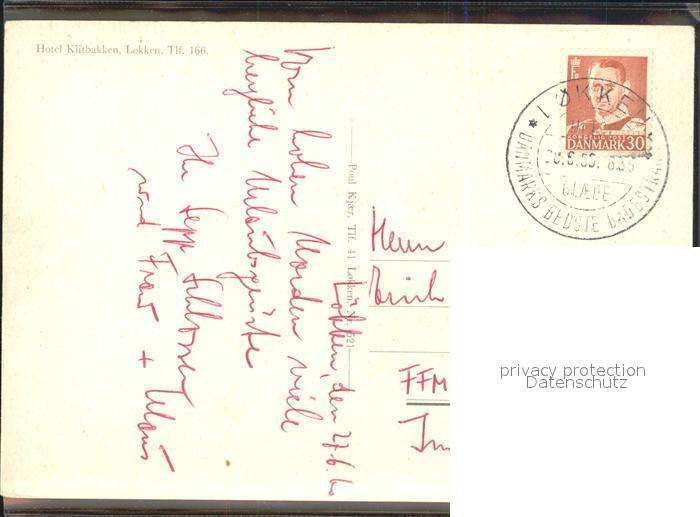 Hotel Klitbakken, Løkken, Tlf. 166.
Løkken, den 27.6.60
Vom hohen Norden viele
herzliche Urlaubsgrüsse
Ihr Sepp
und Frau + Klaus
Poul Kjær, Tlf. 41 Løkken, Nr. 521
Herrn
Erich
FFM
DANMARK 30
* LØKKEN *
DANMARKS BEDSTE BADESTRAND
GLÆDE
privacy protection
Datenschutz